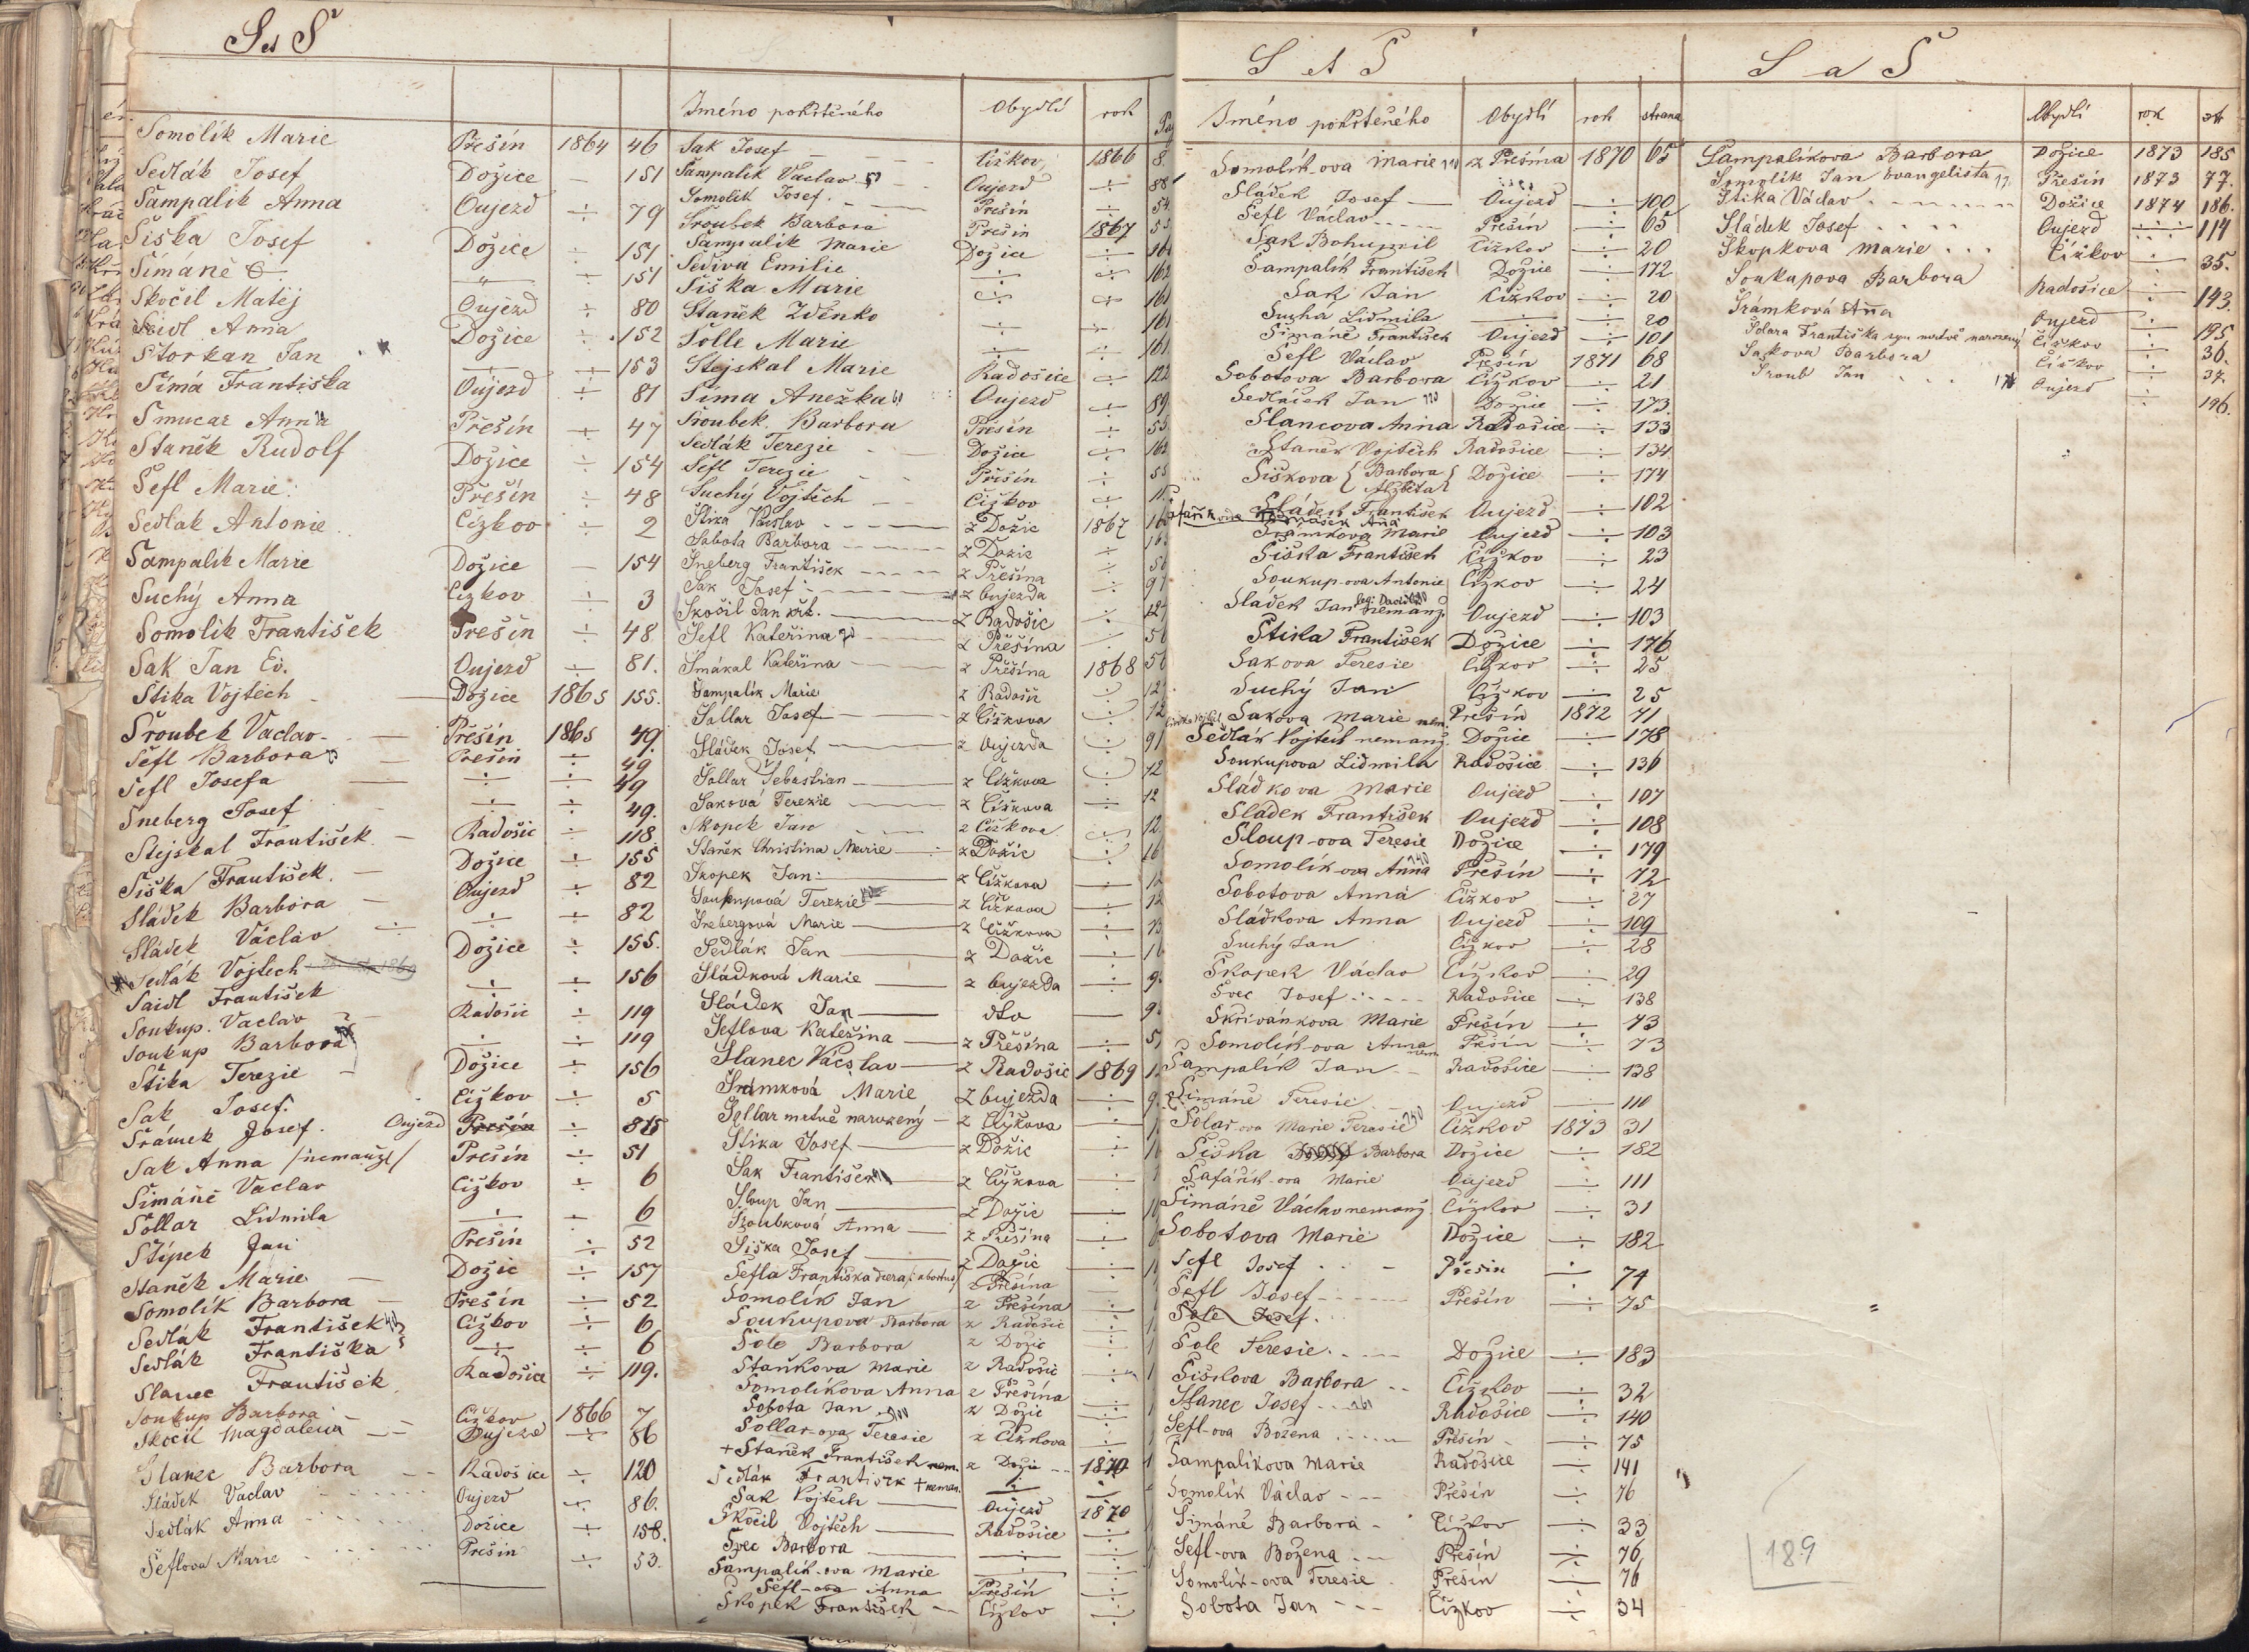 S et Š
Somolík Marie Přešín 1864 46
Sedlák Josef Dožice — 151
Šampalík Anna Oujezd ÷ 79
Šiška Josef Dožice ÷ 151
Šimáně — " — ÷ 151
Skočil Matěj Oujezd ÷ 80
Anna Dožice ÷ 152
Štorkan Jan ÷ ÷ 153
Šímá Františka Oujezd ÷ 81
Smucar Anna Přešín ÷ 47
Staněk Rudolf Dožice ÷ 154
Šefl Marie Přešín ÷ 48
Sedlak Antonie Čížkov ÷ 2
Šampalik Marie Dožice — 154
Suchý Anna Čížkov ÷ 3
Somolík František Přešín ÷ 48
Sak Jan Ev. Oujezd ÷ 81.
Štika Vojtěch — Dožice 1865 155.
Šroubek Vaclav — Přešín 1865 49.
Šefl Barbora — Přešín ÷ 49
Šefl Josefa — ÷ ÷ 49
Šneberg Josef ÷ ÷ 49.
Stejskal František — Radošic ÷ 118
Šiška František — Dožice ÷ 155
Sládek Barbora — Oujezd ÷ 82
Sládek Václav ÷ ÷ 82
Sedlák Vojtech Dožice ÷ 155.
Saidl František ÷ ÷ 156
Soukup Vaclav Radošic ÷ 119
Soukup Barbora ÷ ÷ 119
Štika Terezie Dožice ÷ 156
Sak Josef Čížkov ÷ 5
Šrámek Josef. Oujezd Přešín ÷
Sak Anna /nemanž/ Přešín ÷ 51
Šimáně Vaclav Čížkov ÷ 6
Šollar Lidmila ÷ ÷ 6
Štípek Jan Přešín ÷ 52
Staněk Marie — Dožic ÷ 157
Somolík Barbora — Přešín ÷ 52
Sedlák František Čížkov ÷ 6
Sedlák Františka ÷ ÷ 6
Slanec František Radošice ÷ 119.
Soukup Barbora Čížkov 1866 7
Skočil Magdalena — Oujezd ÷ 86
Slanec Barbora Radošice ÷ 120
Sládek Vaclav Oujezd ÷ 86.
Sedlák Anna Dožice ÷ 158.
Šeflova Marie Přešín ÷ 53.
Jméno pokřtěného Obydlí rok
Sak Josef Čížkov 1866 8.
Šampalik Vaclav Oujezd ÷ 88
Somolík Josef Přešín ÷ 54
Šroubek Barbora Přešín 1867 55
Šampalik Marie Dožice ÷
Šedivá Emilie ÷ ÷ 162
Šiška Marie ÷ ÷ 161
Staněk Zdenko ÷ ÷ 161
Šolle Marie ÷ ÷ 161
Stejskal Marie Radošice ÷ 122
Šíma Anežka Oujezd ÷ 89
Šroubek Barbora Přešín ÷ 55
Sedlák Terezie Dožice ÷ 162
Šefl Terezie Přešín ÷ 55
Suchý Vojtěch — Čížkov ÷ 11.
Štika Václav z Dožic 1867
Sobota Barbora z Dožic ÷
Šneberg František z Přešína ÷ 56
Sak Josef z Oujezda ÷ 91
Skočil Jan z Radošic ÷
Šefl Kateřina z Přešína ÷ 56
Smákal Kateřina z Přešína 1868 56
Šampalík Marie z Radošic ÷ 12
Šollar Josef z Čížkova ÷ 12
Sládek Josef z Oujezda ÷ 91
Šollar Šebastian z Čížkova ÷ 12
Saková Terezie z Čížkova ÷ 12
Skopek Jan z Čížkova ÷ 12
Staněk Christina Marie z Dožic ÷ 16
Skopek Jan z Čížkova ÷ 12
Soukupová Terezie z Čížkova ÷ 12
Šnebergová Marie z Čížkova ÷ 13
Sedlák Jan z Dožic ÷ 16
Sládková Marie z Oujezda ÷ 9
Sládek Jan — dto — 9
Šeflova Kateřina z Přešína ÷ 5
Slanec Václav z Radošic 1869
Šrámková Marie z Oujezda ÷ 9
Šollar mrtvě narozený z Čížkova ÷
Štika Josef z Dožic ÷
Sak František z Čížkova ÷
Sloup Jan z Dožic ÷
Šroubková Anna z Přešína ÷
Šiška Josef z Dožic ÷
Šefla Františka dcera (abortus) z Přešína
Somolík Jan z Přešína ÷
Soukupova Barbora z Radošic ÷
Šole Barbora z Dožic ÷
Staňkova Marie z Radošic ÷
Somolíkova Anna z Přešína
Sobota Jan z Dožic ÷
Šollar-ova Teresie z Čížkova ÷
+ Staněk František nem. z Dožic 1870
Sedlák František + neman. ÷
Sak Vojtěch — Oujezd 1870
Skočil Vojtěch — Radošice ÷
Špec Barbora ÷ ÷
Šampalík-ova Marie ÷ ÷
Šefl-ova Anna Přešín ÷
Skopek František — Čížkov ÷
S et Š
Jméno pokřtěného Obydlí rok strana
Somolík-ova Marie z Přešína 1870 65
Sládek Josef — Oujezd ÷ 100
Šefl Vaclav Přešín ÷ 65
Sak Bohumil Čížkov ÷ 20
Šampalík František Dožice ÷ 172
Sak Jan Čížkov ÷ 20
Suchá Lidmila ÷ ÷ 20
Šimáně František Oujezd ÷ 101
Šefl Václav Přešín 1871 68
Sobotova Barbora Čížkov ÷ 21
Sedláček Jan Dožice ÷ 173.
Slancova Anna Radošice ÷ 133
Staněk Vojtěch Radošice ÷ 134
Šiškova { Barbora Alžběta } Dožice ÷ 174
Sládek František Oujezd ÷ 102
Šrámkova Marie Oujezd ÷ 103
Šiška František Čížkov ÷ 23
Soukup-ova Antonie Čížkov ÷ 24
Sládek Jan nemanž. Oujezd ÷ 103
Štika František Dožice ÷ 176
Sakova Teresie Čížkov ÷ 25
Suchý Jan Čížkov ÷ 25
Sakova Marie nem. Přešín 1872 71
Sedlák Vojtěch nemanž. Dožice ÷ 178
Soukupova Lidmila Radošice ÷ 136
Sládkova Marie Oujezd ÷ 107
Sládek František Oujezd ÷ 108
Sloup-ova Teresie Dožice ÷ 179
Somolík-ova Anna Přešín ÷ 72
Sobotova Anna Čížkov ÷ 27
Sládkova Anna Oujezd ÷ 109
Suchý Jan Čížkov ÷ 28
Skopek Václav Čížkov ÷ 29
Švec Josef Radošice ÷ 138
Skřivánkova Marie Přešín ÷ 73
Somolík-ova Anna nem. Přešín ÷ 73
Šampalík Jan — Radošice ÷ 138
Šimáně Teresie Oujezd ÷ 110
Šolar-ova Marie Teresie Čížkov 1873 31
Šiška Barbora Dožice ÷ 182
Šafařík-ova Marie Oujezd ÷ 111
Šimáně Václav nemanž. Čížkov ÷ 31
Sobotova Marie Dožice ÷ 182
Šefl Josef Přešín ÷ 74
Šefl Josef Přešín ÷ 75
Šole Josef
Šole Teresie Dožice ÷ 183
Šiškova Barbora Čížkov ÷ 32
Slanec Josef Radošice ÷ 140
Šefl-ova Božena Přešín ÷ 75
Šampalíkova Marie Radošice ÷ 141
Somolík Václav Přešín ÷ 76
Šimáně Barbora Čížkov ÷ 33
Šefl-ova Božena Přešín ÷ 76
Somolík-ova Teresie Přešín ÷ 76
Sobota Jan Čížkov ÷ 34
S a Š
Obydlí rok str
Šampalíkova Barbora Dožice 1873 185
Somolík Jan Evangelista Přešín 1873 77.
Štika Václav Dožice 1874 186.
Sládek Josef Oujezd ÷ 114
Skopkova Marie Čížkov ÷ 35.
Soukupova Barbora Radošice ÷ 143.
Šrámková Anna Oujezd ÷ 195
Šolara Františka syn mrtvě narozený Čížkov ÷ 36.
Sakova Barbora Čížkov ÷ 37.
Šroub Jan Oujezd ÷ 196.
189